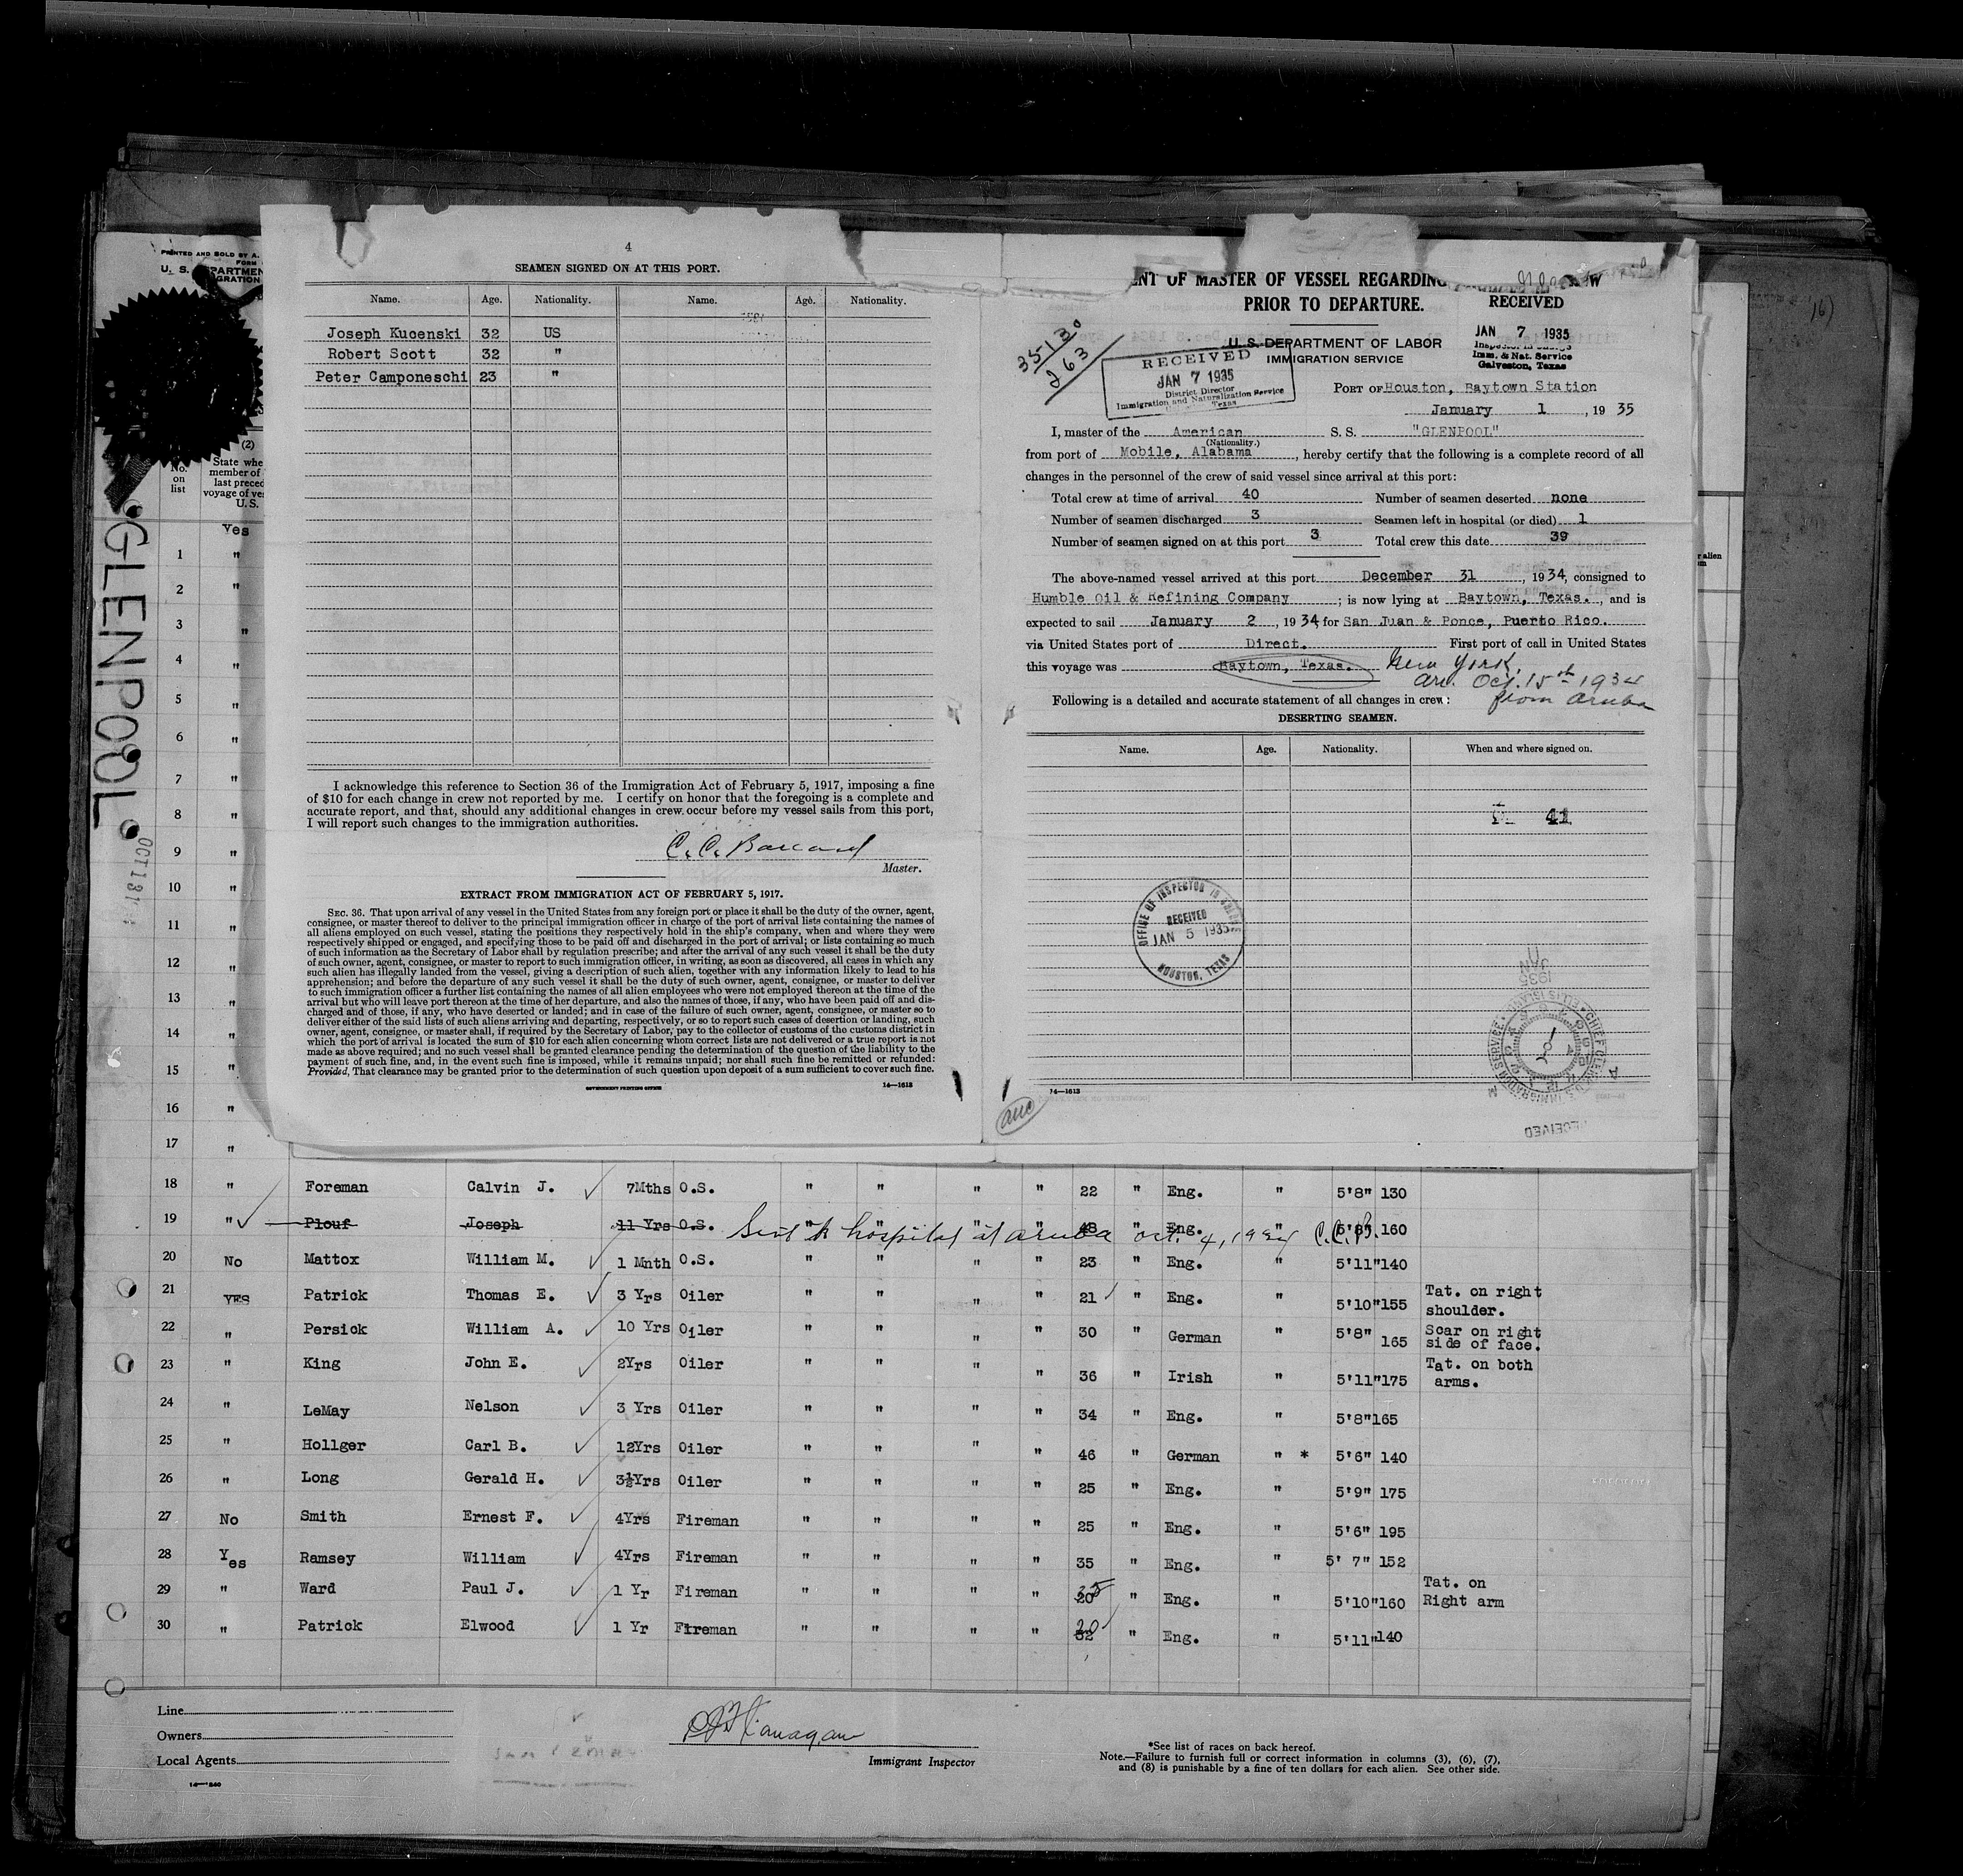 4
SEAMEN SIGNED ON AT THIS PORT.
Name. Age. Nationality. Name. Age. Nationality.
Joseph Kucenski 32 US
Robert Scott 32 "
Peter Camponeschi 23 "
I acknowledge this reference to Section 36 of the Immigration Act of February 5, 1917, imposing a fine
of $10 for each change in crew not reported by me. I certify on honor that the foregoing is a complete and
accurate report, and that, should any additional changes in crew occur before my vessel sails from this port,
I will report such changes to the immigration authorities.
Master.
EXTRACT FROM IMMIGRATION ACT OF FEBRUARY 5, 1917.
SEC. 36. That upon arrival of any vessel in the United States from any foreign port or place it shall be the duty of the owner, agent,
consignee, or master thereof to deliver to the principal immigration officer in charge of the port of arrival lists containing the names of
all aliens employed on such vessel, stating the positions they respectively hold in the ship's company, when and where they were
respectively shipped or engaged, and specifying those to be paid off and discharged in the port of arrival; or lists containing so much
of such information as the Secretary of Labor shall by regulation prescribe; and after the arrival of any such vessel it shall be the duty
of such owner, agent, consignee, or master to report to such immigration officer, in writing, as soon as discovered, all cases in which any
such alien has illegally landed from the vessel, giving a description of such alien, together with any information likely to lead to his
apprehension; and before the departure of any such vessel it shall be the duty of such owner, agent, consignee, or master to deliver
to such immigration officer a further list containing the names of all alien employees who were not employed thereon at the time of the
arrival but who will leave port thereon at the time of her departure, and also the names of those, if any, who have been paid off and dis-
charged and of those, if any, who have deserted or landed; and in case of the failure of such owner, agent, consignee, or master so to
deliver either of the said lists of such aliens arriving and departing, respectively, or so to report such cases of desertion or landing, such
owner, agent, consignee, or master shall, if required by the Secretary of Labor, pay to the collector of customs of the customs district in
which the port of arrival is located the sum of $10 for each alien concerning whom correct lists are not delivered or a true report is not
made as above required; and no such vessel shall be granted clearance pending the determination of the question of the liability to the
payment of such fine, and, in the event such fine is imposed, while it remains unpaid; nor shall such fine be remitted or refunded:
Provided, That clearance may be granted prior to the determination of such question upon deposit of a sum sufficient to cover such fine.
GOVERNMENT PRINTING OFFICE 14—1613
ENT OF MASTER OF VESSEL REGARDING
PRIOR TO DEPARTURE.
RECEIVED
JAN 7 1935
Imm. & Nat. Service
Galveston, Texas
U. S. DEPARTMENT OF LABOR
IMMIGRATION SERVICE
35130
263
RECEIVED
JAN 7 1935
District Director
Immigration and Naturalization Service
Texas
PORT OF Houston, Baytown Station
January 1, 1935
I, master of the American S. S. "GLENPOOL"
(Nationality.)
from port of Mobile, Alabama, hereby certify that the following is a complete record of all
changes in the personnel of the crew of said vessel since arrival at this port:
Total crew at time of arrival 40 Number of seamen deserted none
Number of seamen discharged 3 Seamen left in hospital (or died) 1
Number of seamen signed on at this port 3 Total crew this date 39
The above-named vessel arrived at this port December 31, 1934, consigned to
Humble Oil & Refining Company; is now lying at Baytown, Texas., and is
expected to sail January 2, 1934 for San Juan & Ponce, Puerto Rico.
via United States port of Direct. First port of call in United States
this voyage was Baytown, Texas. New York,
arr. Oct. 15th 1934
from Aruba
Following is a detailed and accurate statement of all changes in crew:
DESERTING SEAMEN.
Name. Age. Nationality. When and where signed on.
41
OFFICE OF INSPECTOR IN CHARGE
RECEIVED
JAN 5 1935
HOUSTON, TEXAS
JAN
1935
RECEIVED
14—1613
PRINTED AND SOLD BY A.
FORM
U. S. DEPARTMEN
(2)
No. on list
State whe
member of
last preced
voyage of ves
U. S.
GLENPOOL
Yes
1 "
2 "
3 "
4 "
5 "
6 "
7 "
8 "
9 "
10 "
11 "
12 "
13 "
14 "
15 "
16 "
17 "
18 " Foreman Calvin J. 7Mths O.S. " " " " 22 " Eng. " 5'8" 130
19 " Plouf Joseph 11 Yrs O.S. " " " " 48 " Eng. " 5'8" 160
Sent to hospital at Aruba Oct. 4, 1934 C.C.B.
20 No Mattox William M. 1 Mnth O.S. " " " " 23 " Eng. " 5'11" 140
21 YES Patrick Thomas E. 3 Yrs Oiler " " " " 21 " Eng. " 5'10" 155 Tat. on right shoulder.
22 " Persick William A. 10 Yrs Oiler " " " " 30 " German " 5'8" 165 Scar on right side of face.
23 " King John E. 2Yrs Oiler " " " " 36 " Irish " 5'11" 175 Tat. on both arms.
24 " LeMay Nelson 3 Yrs Oiler " " " " 34 " Eng. " 5'8" 165
25 " Hollger Carl B. 12Yrs Oiler " " " " 46 " German " * 5'6" 140
26 " Long Gerald H. 3½Yrs Oiler " " " " 25 " Eng. " 5'9" 175
27 No Smith Ernest F. 4Yrs Fireman " " " " 25 " Eng. " 5'6" 195
28 Yes Ramsey William 4Yrs Fireman " " " " 35 " Eng. " 5' 7" 152
29 " Ward Paul J. 1 Yr Fireman " " " " 20 " Eng. " 5'10" 160 Tat. on Right arm
30 " Patrick Elwood 1 Yr Fireman " " " " 20 32 " Eng. " 5'11" 140
Line
Owners
Local Agents
Immigrant Inspector
*See list of races on back hereof.
Note.—Failure to furnish full or correct information in columns (3), (6), (7),
and (8) is punishable by a fine of ten dollars for each alien. See other side.